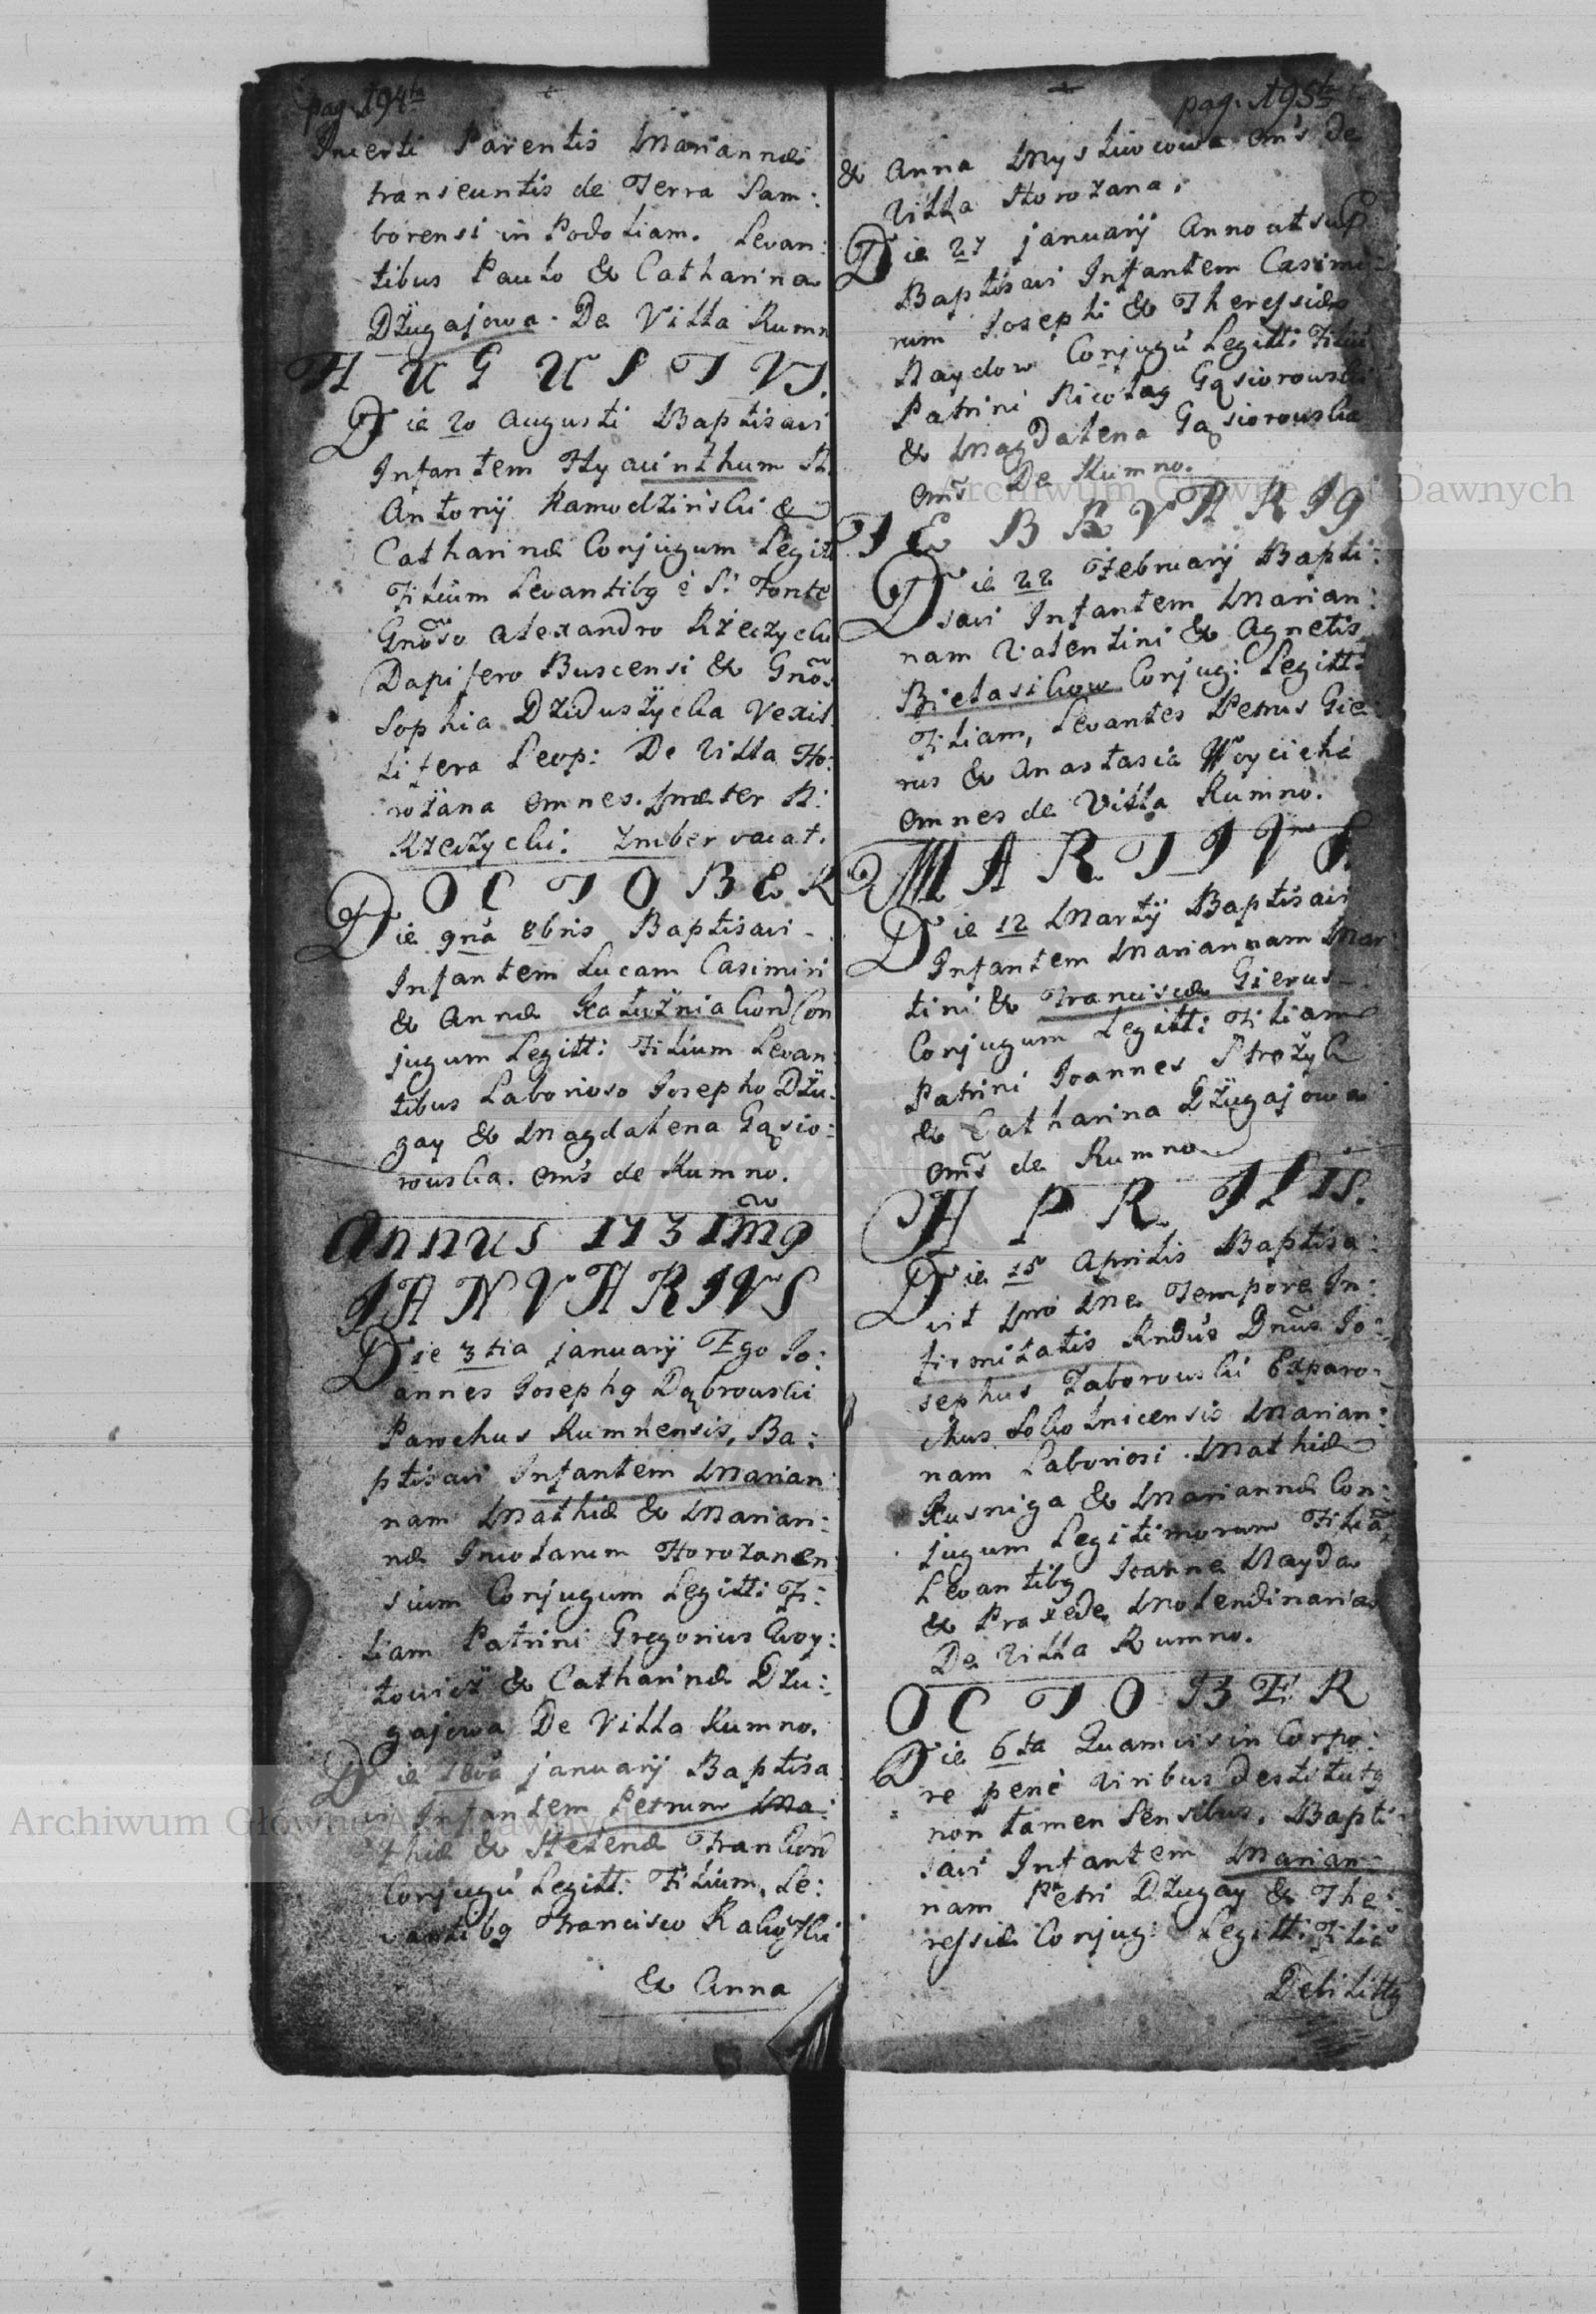 pag. 194ta
Incerti Parentis Mariannæ
transeuntis de Terra Sam:
borensi in Podoliam. Levan:
tibus Paulo & Catharina
Dżugajowa. De Villa Rumn
AUGUSTVS.
Die 20 Augusti Baptisavi
Infantem Hyacinthum M.
Antonij Ramodzinski &
Catharinæ Conjugum Legitt
Filium Levantibg è S: Fonte
Gnõso Alexandro Rżeczycki
Dapifero Buscensi & Gnõs
Sophia Dżiduszycka Vexil
lifera Leop: De Villa Ho:
rożana omnes. præter M:
Rżeczycki: 7mber vacat.
OCTOBER
Die 9na 8bris Baptisavi
Infantem Lucam Casimiri
& Annæ Kałużniakow Con
jugum Legitt: Filium Levan:
tibus Laborioso Josepho Dżu:
gay & Magdalena Gąsio:
rowska. om̃s de Rumno.
Annus 1731mg
IANVARIVS
Die 3tia january Ego Jo:
annes Josephg Dąbrowski
Parochus Rumnensis, Ba:
ptisavi Infantem Marian
nam Mathiæ & Marian:
næ Incolarum Horożanen
sium Conjugum Legitt: Fi:
liam Patrini Gregorius Woy:
towicz & Catharinæ Dżu:
gajowa De Villa Rumno.
Die 18va january Baptisa
vi Infantem Petrum Ma:
thiæ & Helenæ Frankow
Conjugũ Legitt: Filium, Le:
vantibg Francisco Rakowski
& Anna
pag. 195ta
& Anna Mysliwcowa om̃s de
Villa Horożana.
Die 27 january Anno ut sup
Baptisavi Infantem Casimi:
rum Josephi & Theressiæ
Naydow Conjugũ Legitt: Filiũ
Patrini Nicolag Gąsiorowski
& Magdalena Gąsiorowska
om̃s De Rumno.
FEBRVARIg
Die 22 February Bapti:
savi Infantem Marian:
nam Valentini & Agnetis
Bielasikow Conjug: Legitt:
Filiam, Levantes Petrus Gie:
rus & Anastasia Woycicha
omnes de Villa Rumno.
MARTIVS.
Die 12 Martij Baptisavi
Infantem Mariannam Mar
tini & Franciscæ Gierus
Conjugum Legitt: Filiam
Patrini Joannes Strożyk
& Catharina Dżugajowa
om̃s de Rumno
APRILIS.
Die 15 Aprilis Baptisa:
vit pro Me Tempore In:
firmitatis Rndũs Dnũs Jo:
sephus Zaborowski Exparo:
chus Sokolnicensis Marian:
nam Laboriosi Mathiæ
Kusniga & Mariannæ Con:
jugum Legitimorum Filiã,
Levantibg Joanne Nayda
& Praxede Molendinaria
De Villa Rumno.
OCTOBER
Die 6ta Quamvis in Corpo:
re penè viribus destitutg
non tamen Sensibus. Bapti
savi Infantem Marian:
nam Petri Dżugay & The:
ressiæ Conjug: Legitt: Filiã
Debilittg
Archiwum Główne Akt Dawnych
Archiwum Główne Akt Dawnych